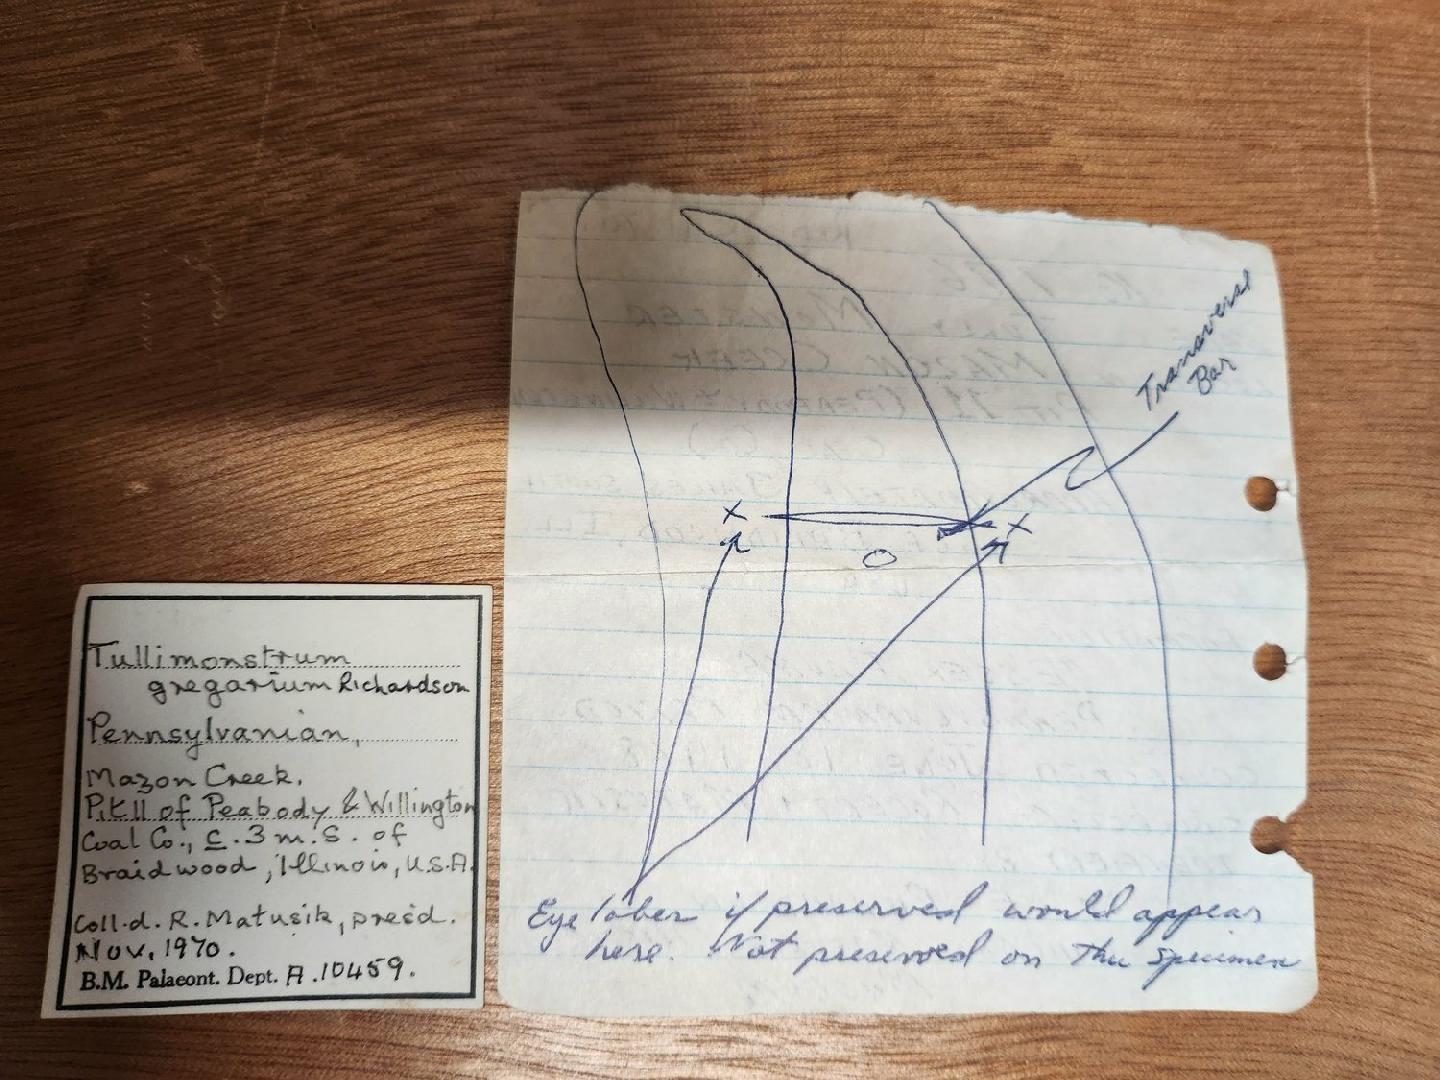 Tullimonstrum
gregarium Richardson
Pennsylvanian,
Mazon Creek.
Pit 11 of Peabody & Willington
Coal Co., c. 3 m. S. of
Braidwood, Illinois, U.S.A.
Coll. d. R. Matusik, presd.
Nov. 1970.
B.M. Palaeont. Dept. A.10459.
Transversal
Bar
x x
Eye lobes if preserved would appear
here. Not preserved on this specimen